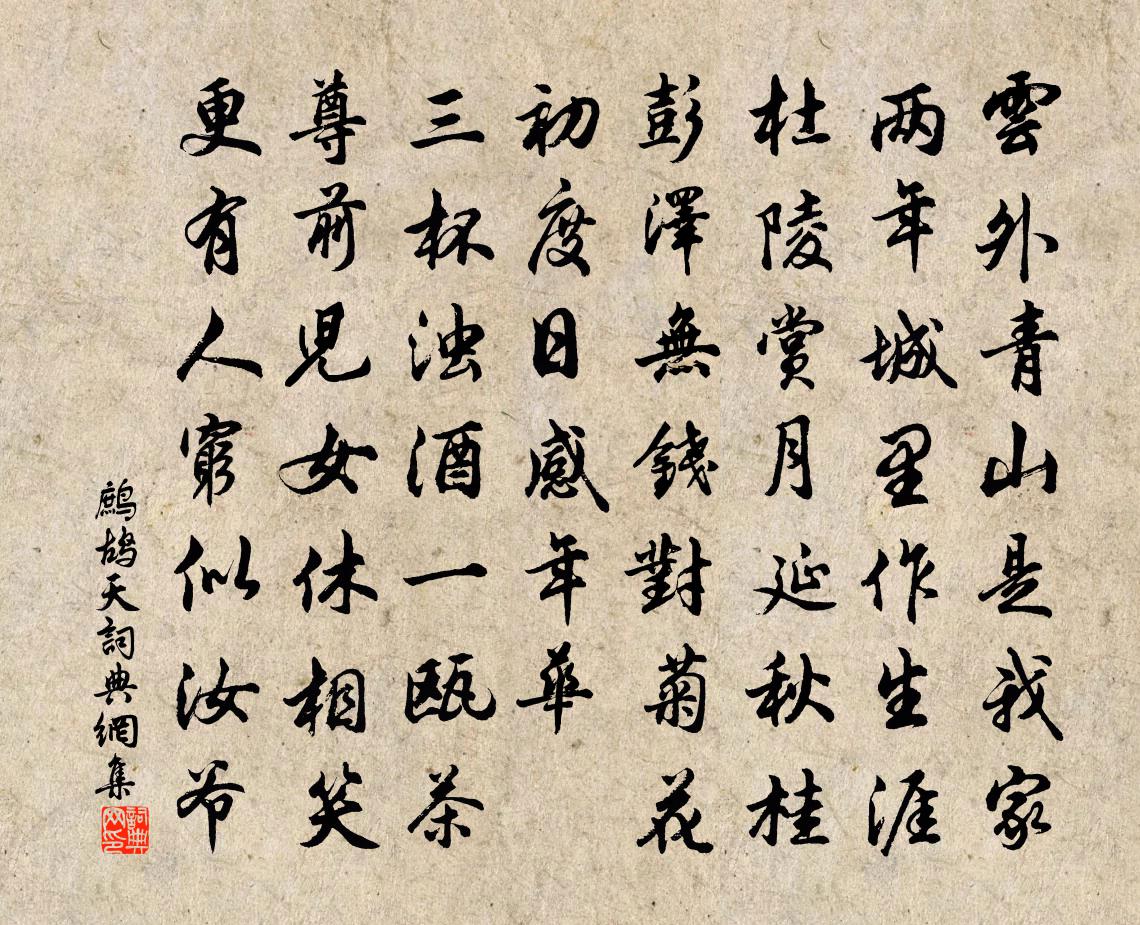 雲外青山是我家
两年城里作生涯
杜陵赏月延秋桂
彭澤無錢對菊花
初度日感年華
三杯浊酒一瓯茶
尊前児女休相笑
更有人窮似汝爷
鷓鴣天詞典網集
詞典网印